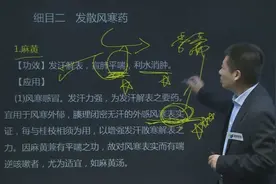 细目二 发散风寒药
1.麻黄
【功效】发汗解表，宣肺平喘，利水消肿。
【应用】
（1）风寒感冒。发汗力强，为发汗解表之要药。
宜用于风寒外郁，腠理闭密无汗的外感风寒表实
证，每与桂枝相须为用，以增强发汗散寒解表之
力。因麻黄兼有平喘之功，故对风寒表实而有喘
逆咳嗽者，尤为适宜，如麻黄汤。